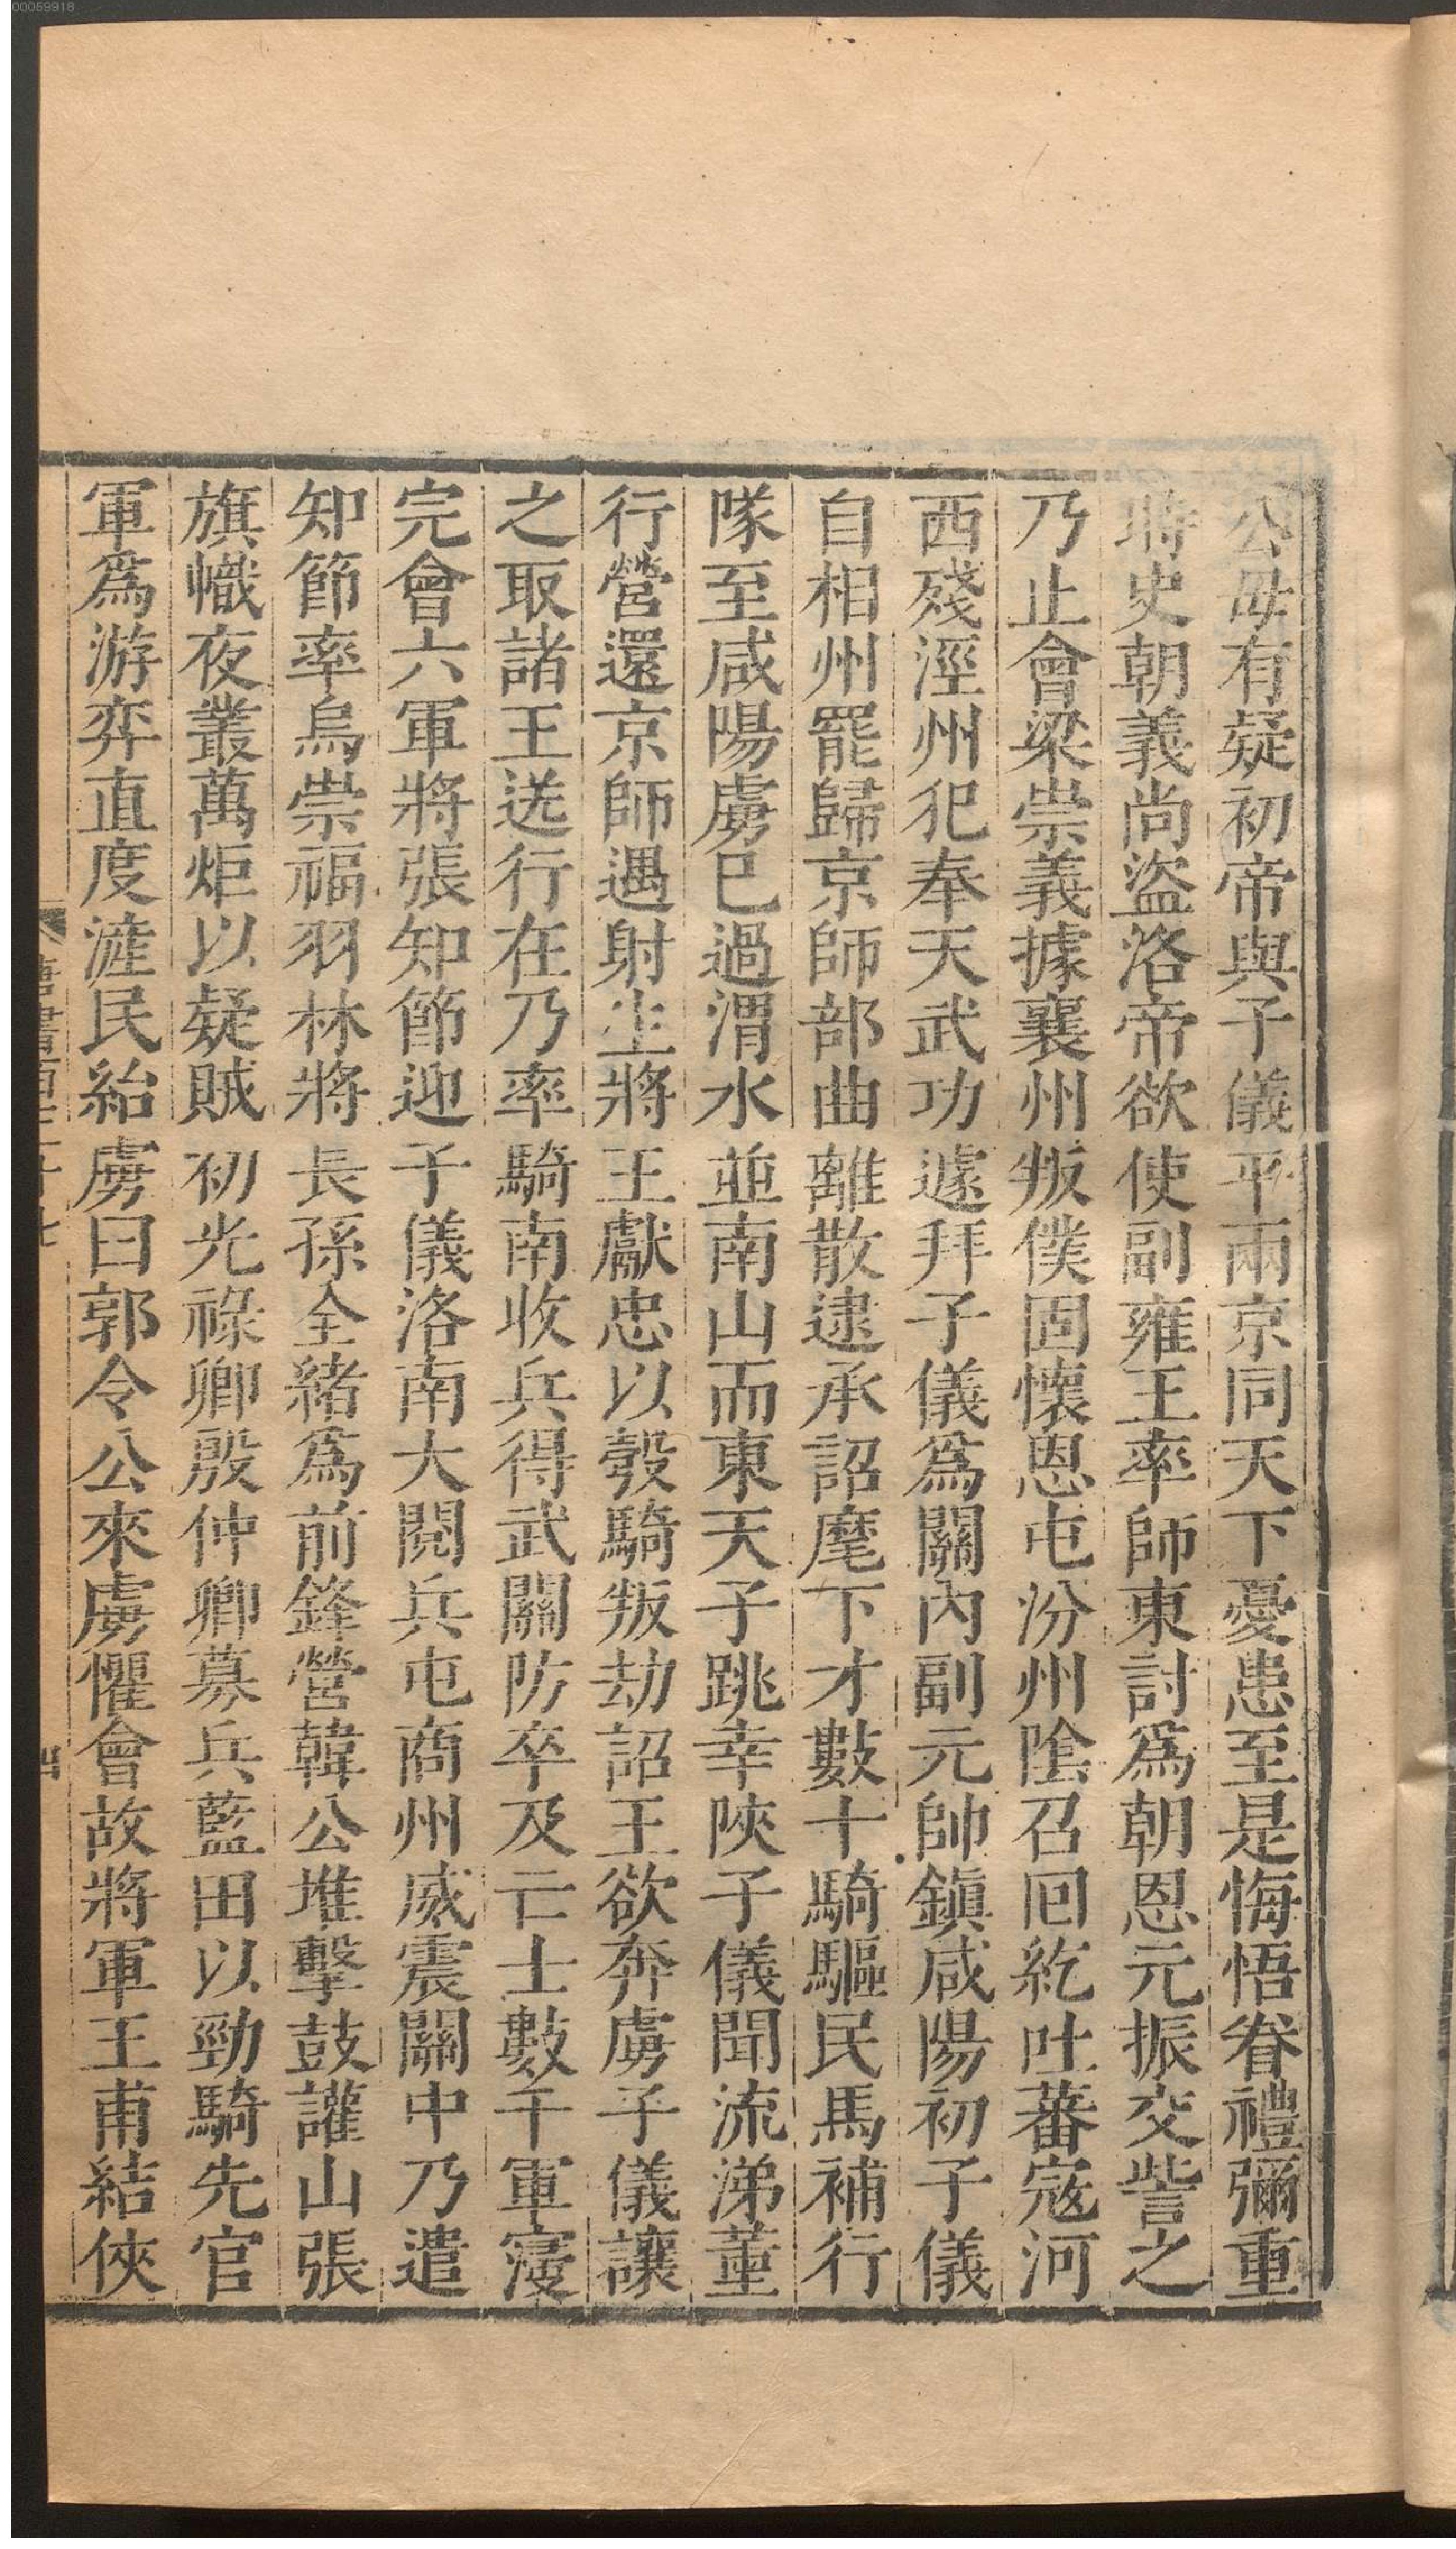 00059918
公毋有疑初帝與子儀平兩京同天下憂患至是悔悟眷禮彌重
時史朝義尚盜洛帝欲使副雍王率師東討爲朝恩元振交訾之
乃止會梁崇義據襄州叛僕固懷恩屯汾州隂召囘紇吐蕃寇河
西殘涇州犯奉天武功遽拜子儀爲關內副元帥鎭咸陽初子儀
自相州罷歸京師部曲離散逮承詔麾下才數十騎驅民馬補行
隊至咸陽虜巳過渭水並南山而東天子跳幸陜子儀聞流涕董
行營還京師遇射生將王獻忠以彀騎叛劫詔王欲奔虜子儀讓
之取諸王送行在乃率騎南收兵得武關防卒及亡士數千軍寖
完會六軍將張知節迎子儀洛南大閱兵屯商州威震關中乃遣
知節率烏崇福羽林將長孫全緒爲前鋒營韓公堆擊鼓讙山張
旗幟夜叢萬炬以疑賊初光祿卿殷仲卿募兵藍田以勁騎先官
軍爲游弈直度滻民紿虜曰郭令公來虜懼會故將軍王甫結俠
唐書百三十七
四